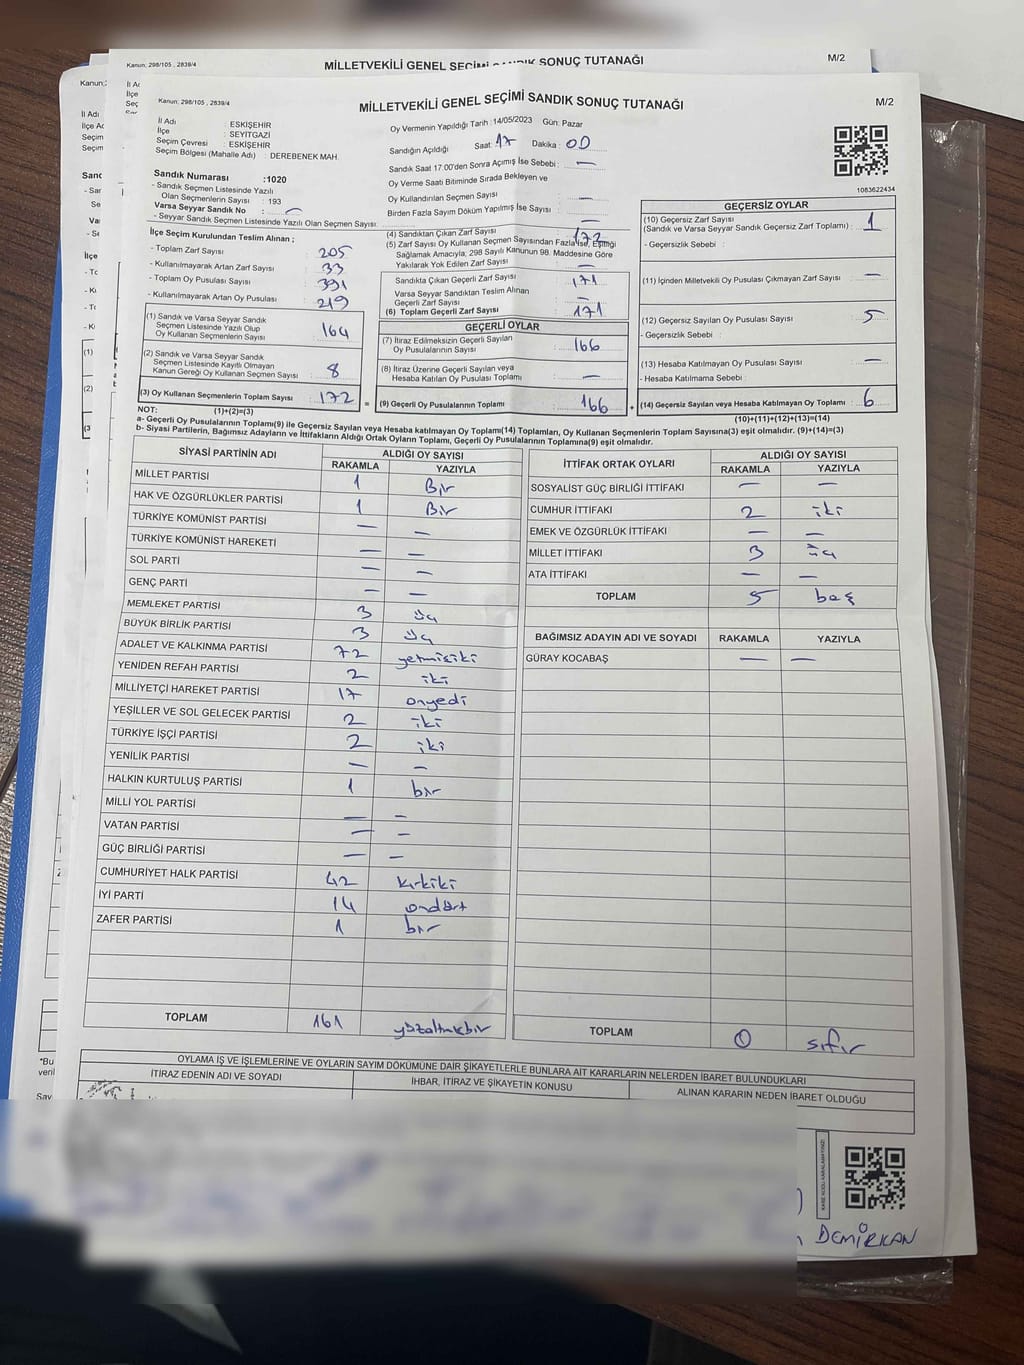 Kanun; 298/105 , 2839/4
M/2
Kanun; 298/105 , 2839/4
MİLLETVEKİLİ GENEL SEÇİMİ SANDIK SONUÇ TUTANAĞI
M/2
İl Adı : ESKİŞEHİR
İlçe : SEYİTGAZİ
Seçim Çevresi : ESKİŞEHİR
Seçim Bölgesi (Mahalle Adı) : DEREBENEK MAH.
Sandık Numarası :1020
- Sandık Seçmen Listesinde Yazılı
Olan Seçmenlerin Sayısı : 193
Varsa Seyyar Sandık No : –
- Seyyar Sandık Seçmen Listesinde Yazılı Olan Seçmen Sayısı
Oy Vermenin Yapıldığı Tarih :14/05/2023 Gün: Pazar
Sandığın Açıldığı Saat: 17 Dakika : 00
Sandık Saat 17:00'den Sonra Açımış İse Sebebi : —
Oy Verme Saati Bitiminde Sırada Bekleyen ve
Oy Kullandırılan Seçmen Sayısı : —
Birden Fazla Sayım Döküm Yapılmış İse Sayısı : —
1083622434
İlçe Seçim Kurulundan Teslim Alınan ;
- Toplam Zarf Sayısı : 205
- Kullanılmayarak Artan Zarf Sayısı : 33
- Toplam Oy Pusulası Sayısı : 391
- Kullanılmayarak Artan Oy Pusulası : 219
(1) Sandık ve Varsa Seyyar Sandık
Seçmen Listesinde Yazılı Olup
Oy Kullanan Seçmenlerin Sayısı : 164
(2) Sandık ve Varsa Seyyar Sandık
Seçmen Listesinde Kayıtlı Olmayan
Kanun Gereği Oy Kullanan Seçmen Sayısı : 8
(3) Oy Kullanan Seçmenlerin Toplam Sayısı : 172
(4) Sandıktan Çıkan Zarf Sayısı : 172
(5) Zarf Sayısı Oy Kullanan Seçmen Sayısından Fazla İse, Eşitliği
Sağlamak Amacıyla, 298 Sayılı Kanunun 98. Maddesine Göre
Yakılarak Yok Edilen Zarf Sayısı : —
Sandıkta Çıkan Geçerli Zarf Sayısı : 171
Varsa Seyyar Sandıktan Teslim Alınan
Geçerli Zarf Sayısı : —
(6) Toplam Geçerli Zarf Sayısı : 171
GEÇERLİ OYLAR
(7) İtiraz Edilmeksizin Geçerli Sayılan
Oy Pusulalarının Sayısı : 166
(8) İtiraz Üzerine Geçerli Sayılan veya
Hesaba Katılan Oy Pusulası Toplamı : —
= (9) Geçerli Oy Pusulalarının Toplamı : 166
GEÇERSİZ OYLAR
(10) Geçersiz Zarf Sayısı
(Sandık ve Varsa Seyyar Sandık Geçersiz Zarf Toplamı) : 1
- Geçersizlik Sebebi :
(11) İçinden Milletvekili Oy Pusulası Çıkmayan Zarf Sayısı : —
(12) Geçersiz Sayılan Oy Pusulası Sayısı : 5
- Geçersizlik Sebebi :
(13) Hesaba Katılmayan Oy Pusulası Sayısı : —
- Hesaba Katılmama Sebebi :
+ (14) Geçersiz Sayılan veya Hesaba Katılmayan Oy Toplamı : 6
NOT: (1)+(2)=(3)
(10)+(11)+(12)+(13)=(14)
a- Geçerli Oy Pusulalarının Toplamı(9) ile Geçersiz Sayılan veya Hesaba Katılmayan Oy Toplamı(14) Toplamları, Oy Kullanan Seçmenlerin Toplam Sayısına(3) eşit olmalıdır. (9)+(14)=(3)
b- Siyasi Partilerin, Bağımsız Adayların ve İttifakların Aldığı Ortak Oyların Toplamı, Geçerli Oy Pusulalarının Toplamına(9) eşit olmalıdır.
SİYASİ PARTİNİN ADI ALDIĞI OY SAYISI
RAKAMLA YAZIYLA
MİLLET PARTİSİ 1 Bir
HAK VE ÖZGÜRLÜKLER PARTİSİ 1 Bir
TÜRKİYE KOMÜNİST PARTİSİ — —
TÜRKİYE KOMÜNİST HAREKETİ — —
SOL PARTİ — —
GENÇ PARTİ — —
MEMLEKET PARTİSİ 3 üç
BÜYÜK BİRLİK PARTİSİ 3 üç
ADALET VE KALKINMA PARTİSİ 72 yetmişiki
YENİDEN REFAH PARTİSİ 2 iki
MİLLİYETÇİ HAREKET PARTİSİ 17 onyedi
YEŞİLLER VE SOL GELECEK PARTİSİ 2 iki
TÜRKİYE İŞÇİ PARTİSİ 2 iki
YENİLİK PARTİSİ — —
HALKIN KURTULUŞ PARTİSİ 1 bir
MİLLİ YOL PARTİSİ — —
VATAN PARTİSİ — —
GÜÇ BİRLİĞİ PARTİSİ — —
CUMHURİYET HALK PARTİSİ 42 kırkiki
İYİ PARTİ 14 ondört
ZAFER PARTİSİ 1 bir
TOPLAM 161 yüzaltmışbir
İTTİFAK ORTAK OYLARI ALDIĞI OY SAYISI
RAKAMLA YAZIYLA
SOSYALİST GÜÇ BİRLİĞİ İTTİFAKI — —
CUMHUR İTTİFAKI 2 iki
EMEK VE ÖZGÜRLÜK İTTİFAKI — —
MİLLET İTTİFAKI 3 üç
ATA İTTİFAKI — —
TOPLAM 5 beş
BAĞIMSIZ ADAYIN ADI VE SOYADI RAKAMLA YAZIYLA
GÜRAY KOCABAŞ — —
TOPLAM 0 sıfır
OYLAMA İŞ VE İŞLEMLERİNE VE OYLARIN SAYIM DÖKÜMÜNE DAİR ŞİKAYETLERLE BUNLARA AİT KARARLARIN NELERDEN İBARET BULUNDUKLARI
İTİRAZ EDENİN ADI VE SOYADI İHBAR, İTİRAZ VE ŞİKAYETİN KONUSU ALINAN KARARIN NEDEN İBARET OLDUĞU
DEMİRKAN